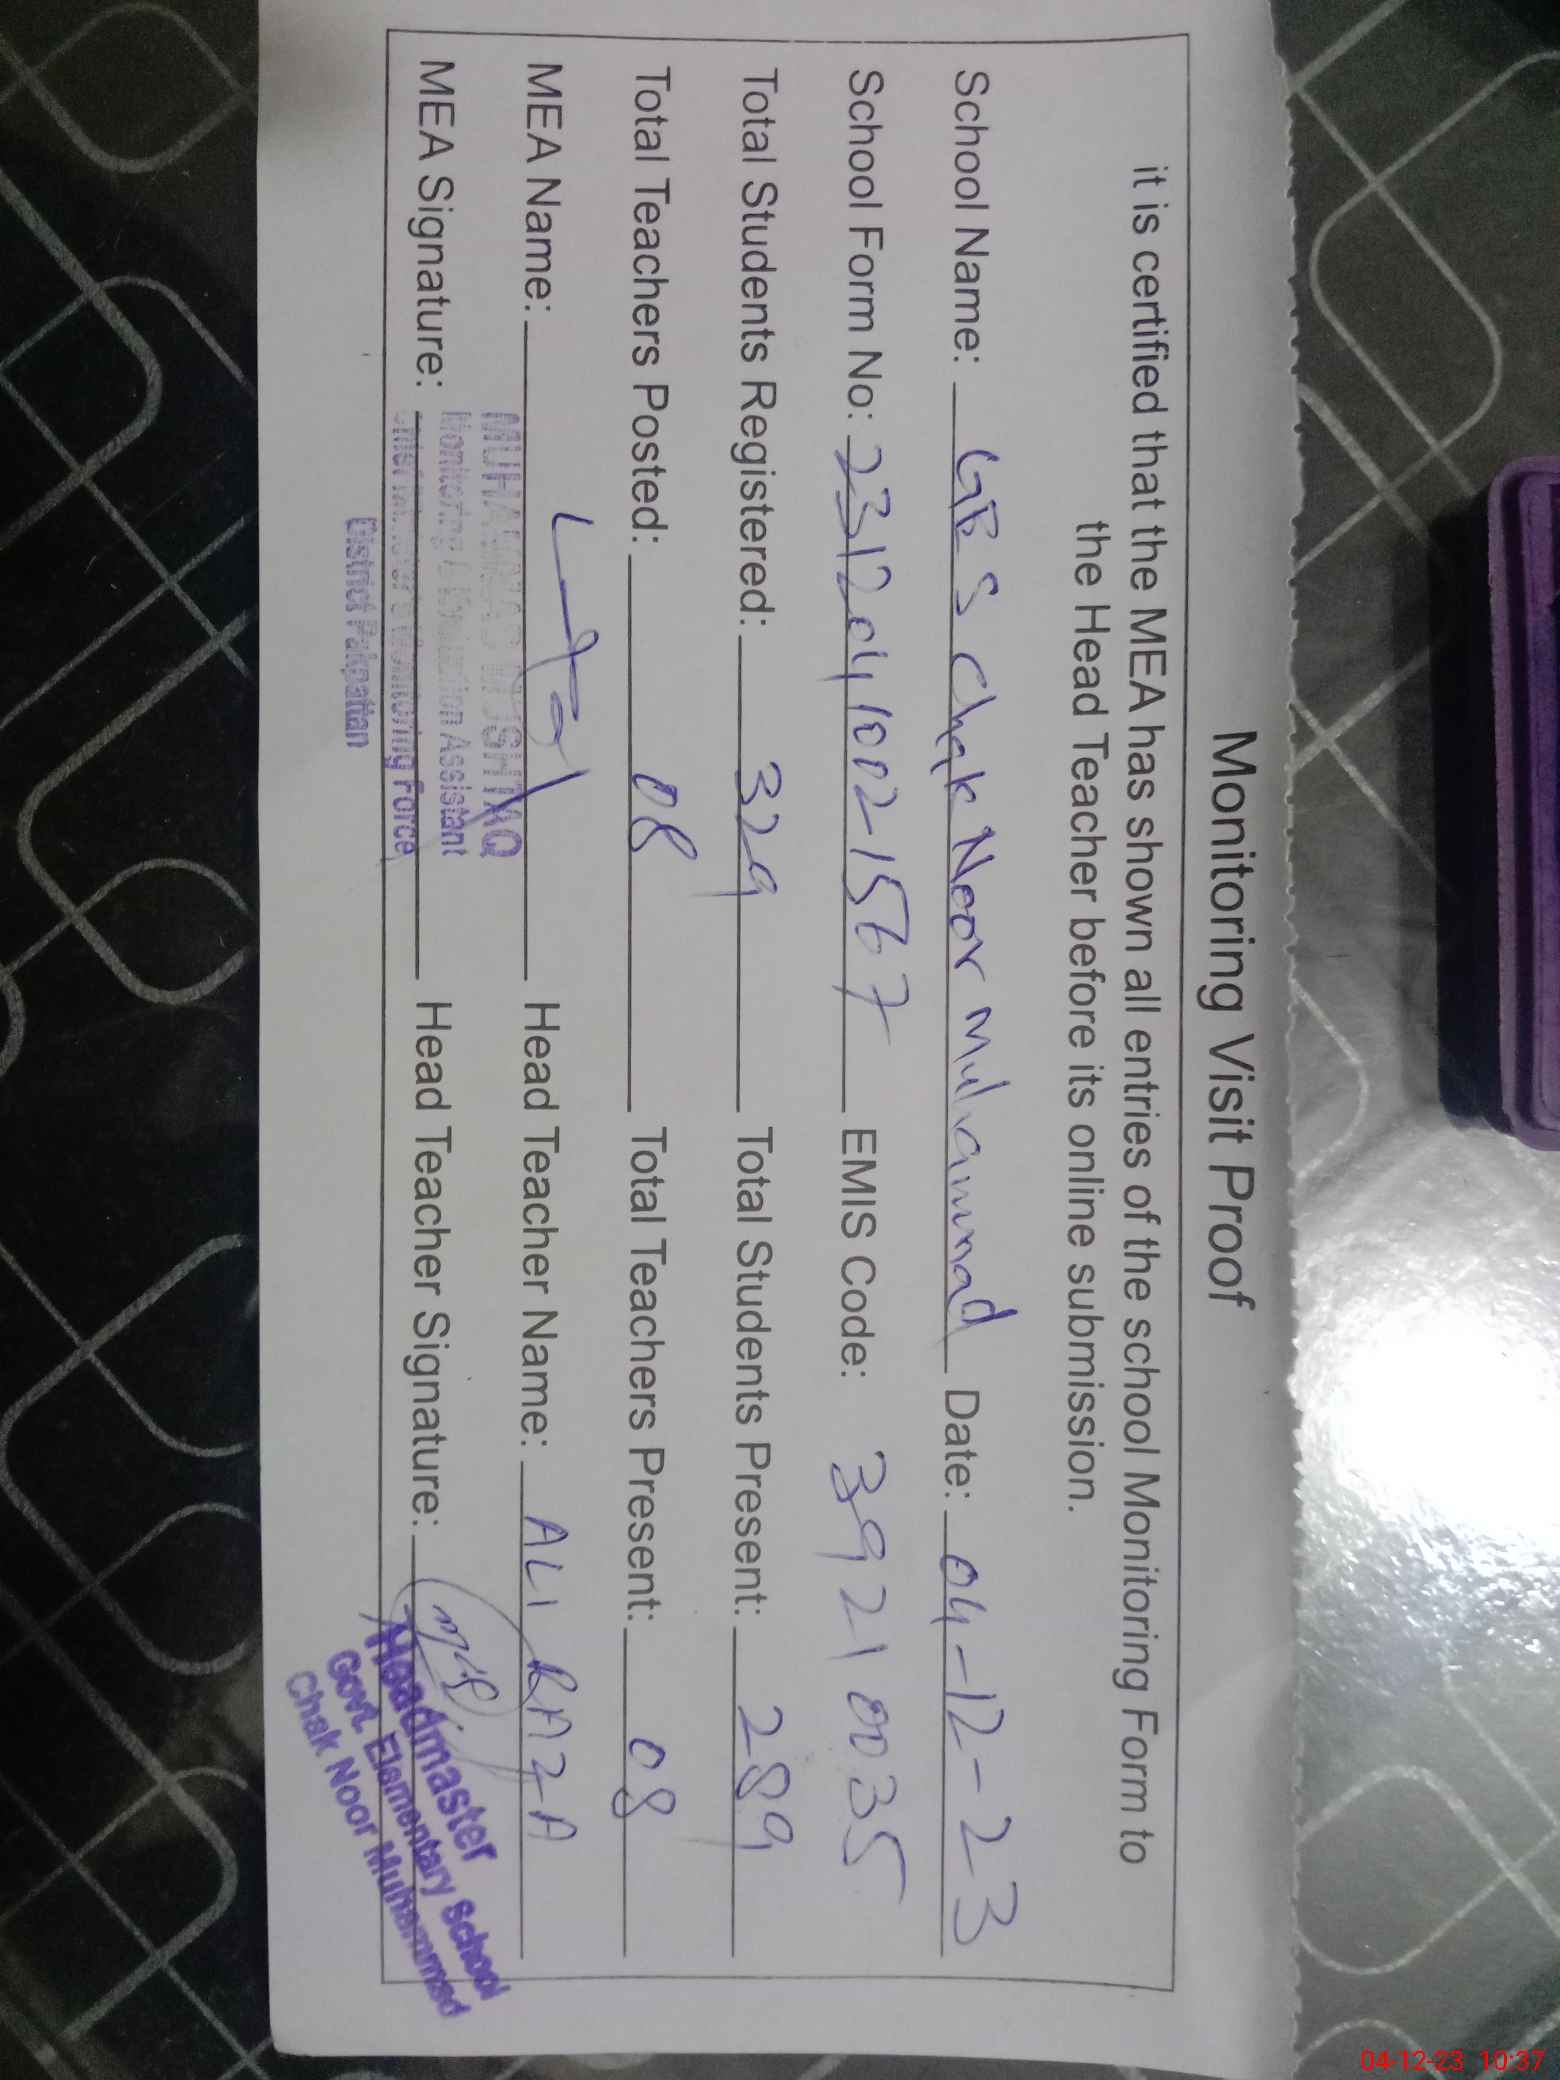 Monitoring Visit Proof
it is certified that the MEA has shown all entries of the school Monitoring Form to
the Head Teacher before its online submission.
School Name: GES Chak Noor Muhammad Date: 04-12-23
School Form No: 2312041002-1567 EMIS Code: 39210035
Total Students Registered: 329 Total Students Present: 289
Total Teachers Posted: 08 Total Teachers Present: 08
MEA Name: Head Teacher Name: ALI RAZA
MUHAMMAD MUSHTAQ
Monitoring & Evaluation Assistant
MEA Signature: Head Teacher Signature:
Chief Minister's Monitoring Force
District Pakpattan
Headmaster
Govt. Elementary School
Chak Noor Muhammad
04-12-23 10:37